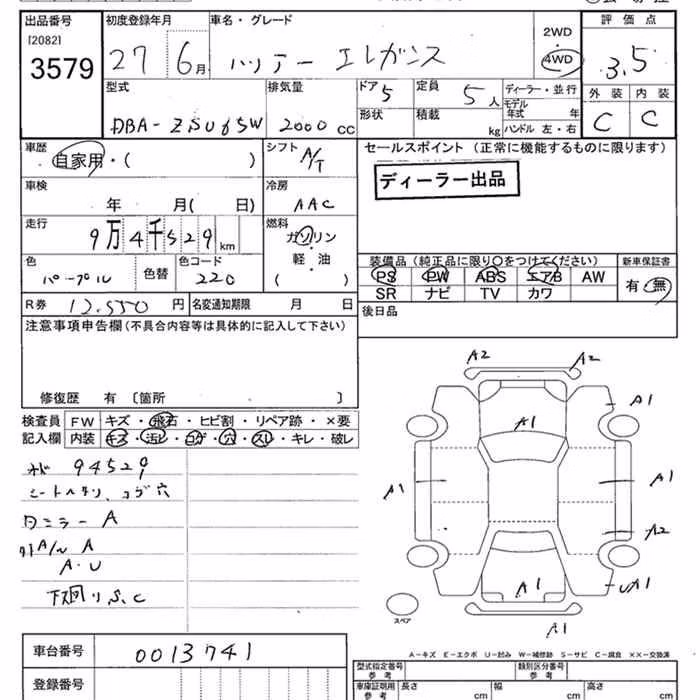 出品番号 初度登録年月 車名・グレード 2WD 評価点
[2082]
3579 27 6月 ハリアー エレガンス 4WD 3.5
外装 内装
型式 排気量 ドア5 定員 5人 ディーラー・並行 C C
DBA-ZSU65W 2000cc 形状 積載 kg モデル年式 年
ハンドル 左・右
車歴 自家用・( ) シフト A/T セールスポイント (正常に機能するものに限ります)
ディーラー出品
車検 年 月( 日) 冷房 AAC
走行 9万4千529km 燃料 ガソリン
軽・油
( )
色 パープル 色替 色コード 220
装備品 (純正品に限り○をつけてください) 新車保証書
PS PW ABS エアB AW 有・無
SR ナビ TV カワ
R券 12,550円 名変通知期限 月 日
後日品
注意事項申告欄(不具合内容等は具体的に記入して下さい)
修復歴 有 [箇所 ]
検査員 FW キズ・飛石・ヒビ割・リペア跡・×要
記入欄 内装 キズ・汚レ・コゲ・穴・スレ・キレ・破レ
94529
シートヘタリ、コゲ穴
A
A/W A
A・U
下廻りS、C
A2 A2
A1 A1
A1 A1
A2
A1 UA1
A1
スペア
A-キズ E-エクボ U-凹み W-補修跡 S-サビ C-腐食 ××-交換済
車台番号 0013741
登録番号
型式指定番号 参考 類別区分番号 参考
車庫証明用 参考 長さ cm 幅 cm 高さ cm